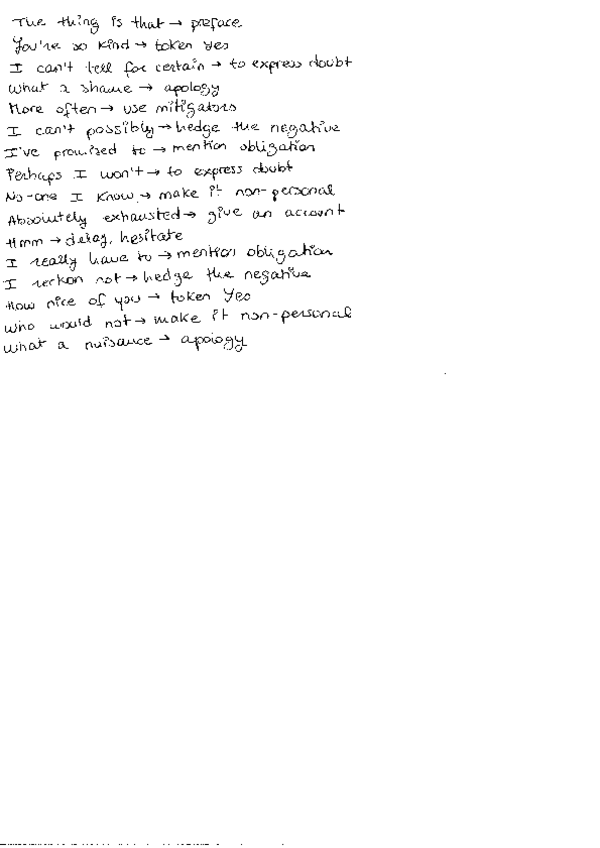 The thing is that → preface
You're so kind → token yes
I can't tell for certain → to express doubt
What a shame → apology
More often → use mitigators
I can't possibly → hedge the negative
I've promised to → mention obligation
Perhaps I won't → to express doubt
No-one I know → make it non-personal
Absolutely exhausted → give an account
Hmm → delay, hesitate
I really have to → mention obligation
I reckon not → hedge the negative
How nice of you → token Yes
Who would not → make it non-personal
What a nuisance → apology